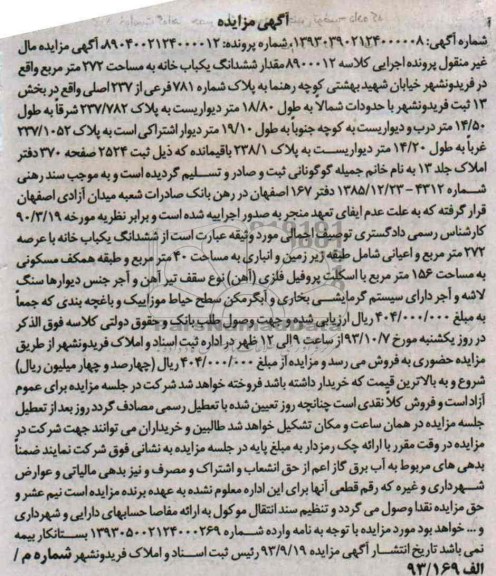 آگهی مزایده
شماره آگهی: ۱۳۹۳۰۳۹۰۲۱۲۴۰۰۰۰۰۸، شماره پرونده: ۸۹۰۴۰۰۲۱۲۴۰۰۰۰۱۲، آگهی مزایده مال
غیر منقول پرونده اجرایی کلاسه ۸۹۰۰۰۱۲ مقدار ششدانگ یکباب خانه به مساحت ۲۷۲ متر مربع واقع
در فریدونشهر خیابان شهید بهشتی کوچه رهنما به پلاک شماره ۷۸۱ فرعی از ۲۳۷ اصلی واقع در بخش
۱۳ ثبت فریدونشهر با حدودات شمالا به طول ۱۸/۸۰ متر دیواریست به پلاک ۲۳۷/۷۸۲ شرقا به طول
۱۴/۵۰ متر درب و دیواریست به کوچه جنوبا به طول ۱۹/۱۰ متر دیوار اشتراکی است به پلاک ۲۳۷/۱۰۵۲
غربا به طول ۱۴/۲۰ متر دیواریست به پلاک ۲۳۸/۱ باقیمانده که ذیل ثبت ۲۵۲۴ صفحه ۳۷۰ دفتر
املاک جلد ۱۳ به نام خانم جمیله گوگونانی ثبت و صادر و تسلیم گردیده است و به موجب سند رهنی
شماره ۴۳۱۲ - ۱۳۸۵/۱۲/۲۳ دفتر ۱۶۷ اصفهان در رهن بانک صادرات شعبه میدان آزادی اصفهان
قرار گرفته که به علت عدم ایفای تعهد منجر به صدور اجراییه شده است و برابر نظریه مورخه ۹۰/۳/۱۹
کارشناس رسمی دادگستری توصیف اجمالی مورد وثیقه عبارت است از ششدانگ یکباب خانه با عرصه
۲۷۲ متر مربع و اعیانی شامل طبقه زیر زمین و انباری به مساحت ۴۰ متر مربع و طبقه همکف مسکونی
به مساحت ۱۵۶ متر مربع با اسکلت پروفیل فلزی (آهن) نوع سقف تیر آهن و آجر جنس دیوارها سنگ
لاشه و آجر دارای سیستم گرمایشی بخاری و آبگرمکن سطح حیاط موزاییک و باغچه بندی که جمعا
به مبلغ ۴۰۴/۰۰۰/۰۰۰ ریال ارزیابی شده و جهت وصول طلب بانک و حقوق دولتی کلاسه فوق الذکر
در روز یکشنبه مورخ ۹۳/۱۰/۷ از ساعت ۹ الی ۱۲ ظهر در اداره ثبت اسناد و املاک فریدونشهر از طریق
مزایده حضوری به فروش می رسد و مزایده از مبلغ ۴۰۴/۰۰۰/۰۰۰ ریال (چهارصد و چهار میلیون ریال)
شروع و به بالاترین قیمت که خریدار داشته باشد فروخته خواهد شد شرکت در جلسه مزایده برای عموم
آزاد است و فروش کلا نقدی است چنانچه روز تعیین شده با تعطیل رسمی مصادف گردد روز بعد از تعطیل
جلسه مزایده در همان ساعت و مکان تشکیل خواهد شد طالبین و خریداران می توانند جهت شرکت در
مزایده در وقت مقرر با ارائه چک رمزدار به مبلغ پایه در جلسه مزایده به نشانی فوق شرکت نمایند ضمنا
بدهی های مربوط به آب برق گاز اعم از حق انشعاب و اشتراک و مصرف و نیز بدهی مالیاتی و عوارض
شهرداری و غیره که رقم قطعی آنها برای این اداره معلوم نشده به عهده برنده مزایده است نیم عشر و
حق مزایده نقدا وصول می گردد و تنظیم سند انتقال موکول به ارائه مفاصا حسابهای دارایی و شهرداری
و ... خواهد بود مورد مزایده با توجه به نامه وارده شماره ۱۳۹۳۰۵۰۰۲۱۲۴۰۰۰۲۶۹ بستانکار بیمه
نمی باشد تاریخ انتشار آگهی مزایده ۹۳/۹/۱۹ رئیس ثبت اسناد و املاک فریدونشهر شماره م /
الف ۹۳/۱۶۹